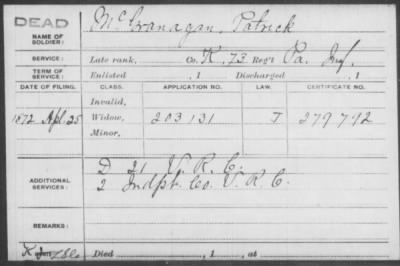 DEAD
NAME OF SOLDIER: McGranagan, Patrick
SERVICE: Late rank, Co. K, 73 Reg't Pa. Inf.
TERM OF SERVICE: Enlisted , 1 Discharged , 1
DATE OF FILING. CLASS. APPLICATION NO. LAW. CERTIFICATE NO.
Invalid,
1872 Apl. 25 Widow, 203131 J 279792
Minor,
D 21 V. R. C.
ADDITIONAL SERVICES: 2 Indpt. Co. V. R. C.
REMARKS:
Died , 1 , at